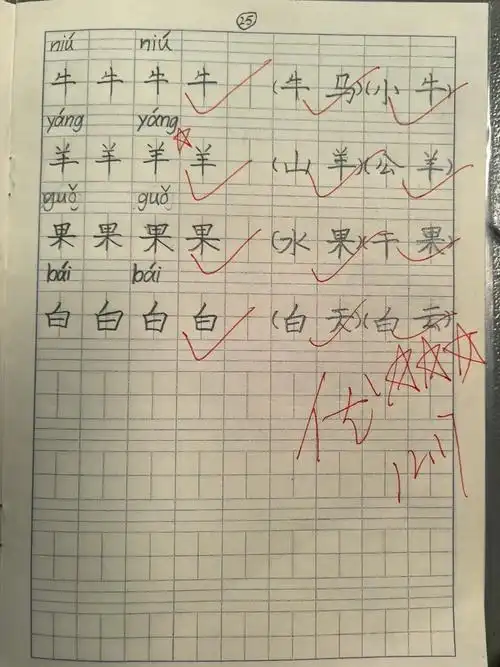 25
niú niú
牛 牛 牛 牛 (牛 马)(小 牛)
yáng yáng
羊 羊 羊 羊 (山 羊)(公 羊)
guǒ guǒ
果 果 果 果 (水 果)(干 果)
bái bái
白 白 白 白 (白 天)(白 云)
优
12.17